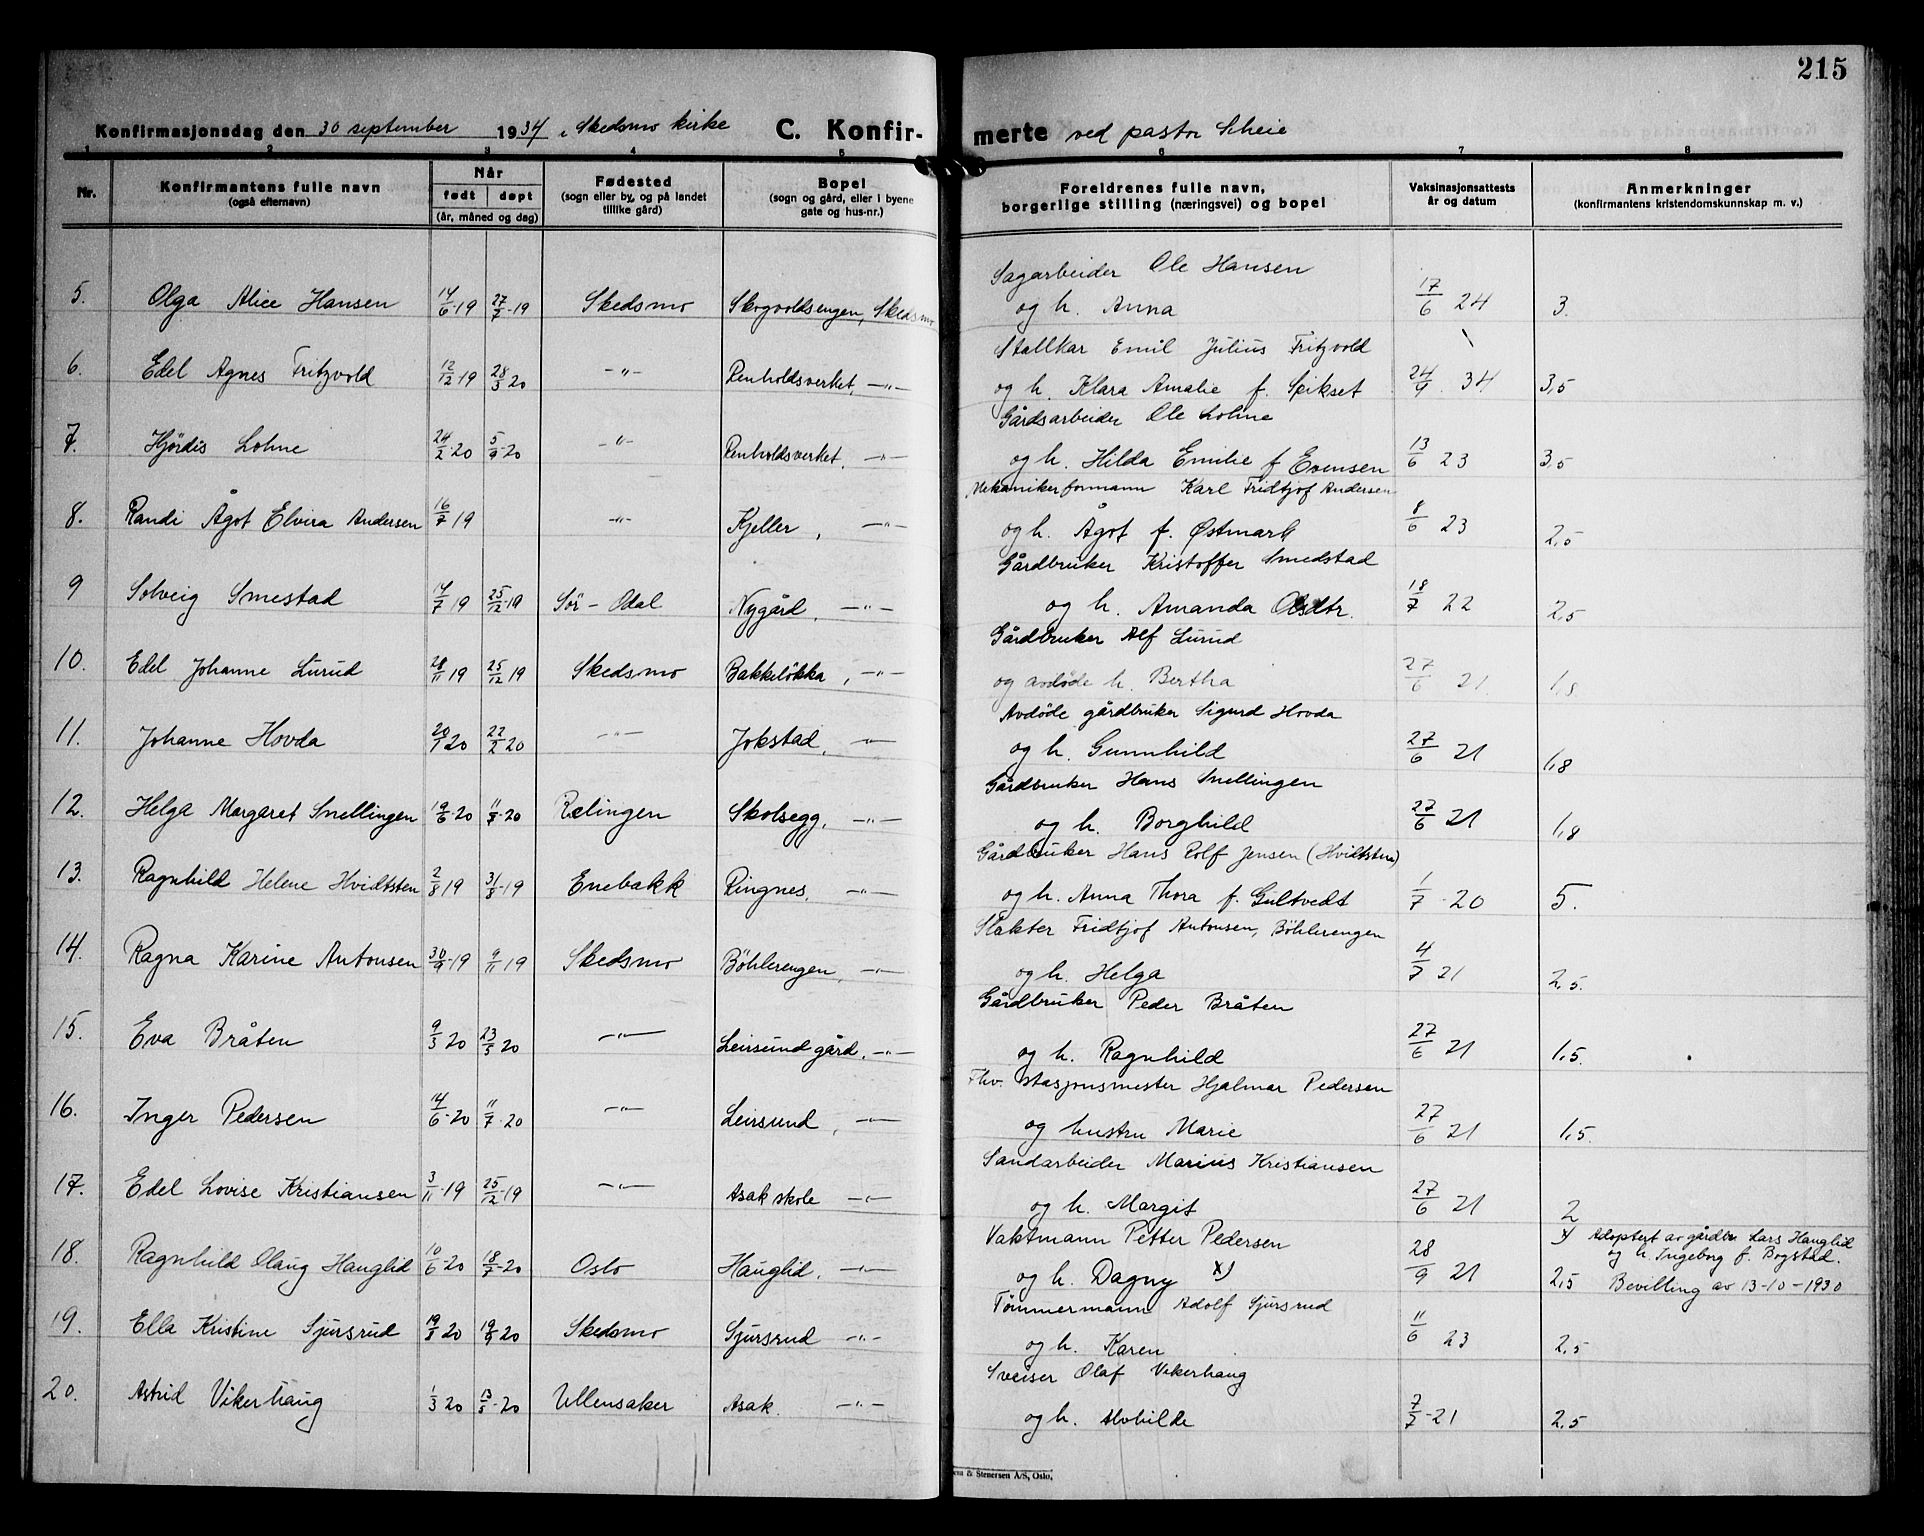 215
Konfirmasjonsdag den 30 september 1934 i Skedsmo kirke C. Konfir-merte ved pastor Scheie
1 2 3 4 5 6 7 8
Nr. Konfirmantens fulle navn (også efternavn) Når født døpt (år, måned og dag) Fødested (sogn eller by, og på landet tillike gård) Bopel (sogn og gård, eller i byene gate og hus-nr.) Foreldrenes fulle navn, borgerlige stilling (næringsvei) og bopel Vaksinasjonsattests år og datum Anmerkninger (konfirmantens kristendomskunnskap m. v.)
Sagarbeider Ole Hansen
5. Olga Alice Hansen 14/6-19 27/7-19 Skedsmo Skogvoldsengen, Skedsmo og h. Anna 17/6 24 3.
Stallkar Emil Julius Fritzvold
6. Edel Agnes Fritzvold 12/12 19 28/3 20 -"- Renholdsverket, -"- og h. Klara Amalie f. Spikset 24/9. 34 3,5
Gårdsarbeider Ole Lohne
7. Hjördis Lohne 24/2-20 5/9-20 -"- Renholdsverket, -"- og h. Hilda Emilie f Evensen 13/6 23 3,5
Mekanikerformann Karl Fridtjof Andersen
8. Randi Ågot Elvira Andersen 16/7 19 -"- Kjeller, -"- og h. Ågot f. Østmark 8/6 23 2,5
Gårdbruker Kristoffer Smedstad
9 Solveig Smestad 14/7 19 25/12-19 Sör-Odal Nygård, -"- og h. Amanda Olsdtr. 18/7 22 2,5
Gårdbruker Alf Lurud
10. Edel Johanne Lurud 28/11 19 25/12 19 Skedsmo Bakkeløkka, -"- og avdöde h. Bertha 27/6 21. 1,8
Avdöde gårdbruker Sigurd Hovda
11. Johanne Hovda 20/1 20 22/2 20 -"- Jokstad, -"- og h. Gunnhild 27/6 21 1,8
Gårdbruker Hans Snellingen
12. Helga Margaret Snellingen 19/6-20 11/7-20 Rælingen Skolsegg, -"- og h. Borghild 27/6 21 1,8
Gårdbruker Hans Rolf Jensen (Hvidtsten)
13. Ragnhild Helene Hvidtsten 2/8 19 31/8-19 Enebakk Ringnes, -"- og h. Anna Thora f. Gultvedt 1/7-20 5.
Slakter Fridtjof Antonsen, Böhlerengen
14. Ragna Karine Antonsen 30/9-19 9/11 19 Skedsmo Böhlerengen, -"- og h. Helga 4/7 21 2,5.
Gårdbruker Peder Bråten
15. Eva Bråten 9/3 20 23/5 20 -"- Leirsund gård, -"- og h. Ragnhild 27/6 21 1,5.
Fhv. stasjonsmester Hjalmar Pedersen
16. Inger Pedersen 14/6-20 11/7-20 -"- Leirsund, -"- og hustru Marie 27/6 21 1,5.
Sandarbeider Marius Kristiansen
17. Edel Lovise Kristiansen 3/11-19 25/12-19 -"- Asak skole -"- og h. Margit 27/6 21 2
Vaktmann Petter Pedersen x) Adoptert av gårdbr Lars Hauglid
og h. Ingeborg f. Bogstad.
18. Ragnhild Olaug Hauglid 10/6-20 18/7-20 Oslo Hauglid, -"- og h. Dagny x) 28/9 21 2,5 Bevilling av 13-10-1930
Tömmermann Adolf Sjursrud
19. Ella Kristine Sjursrud 19/3 20 19/9-20 Skedsmo Sjursrud -"- og h. Karen 11/6 23 2,5
Sveiser Olaf Vikerhaug
20. Astrid Vikerhaug 1/3 20 13/5-20 Ullensaker Asak. -"- og h. Alvhilde 7/7-21 2,5
& Stenersen A/S, Oslo,